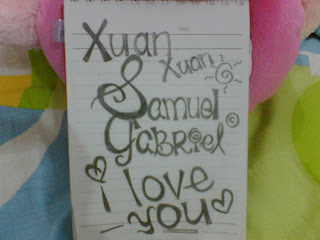 Xuan
Xuan
Samuel
Gabriel ©
i love
you